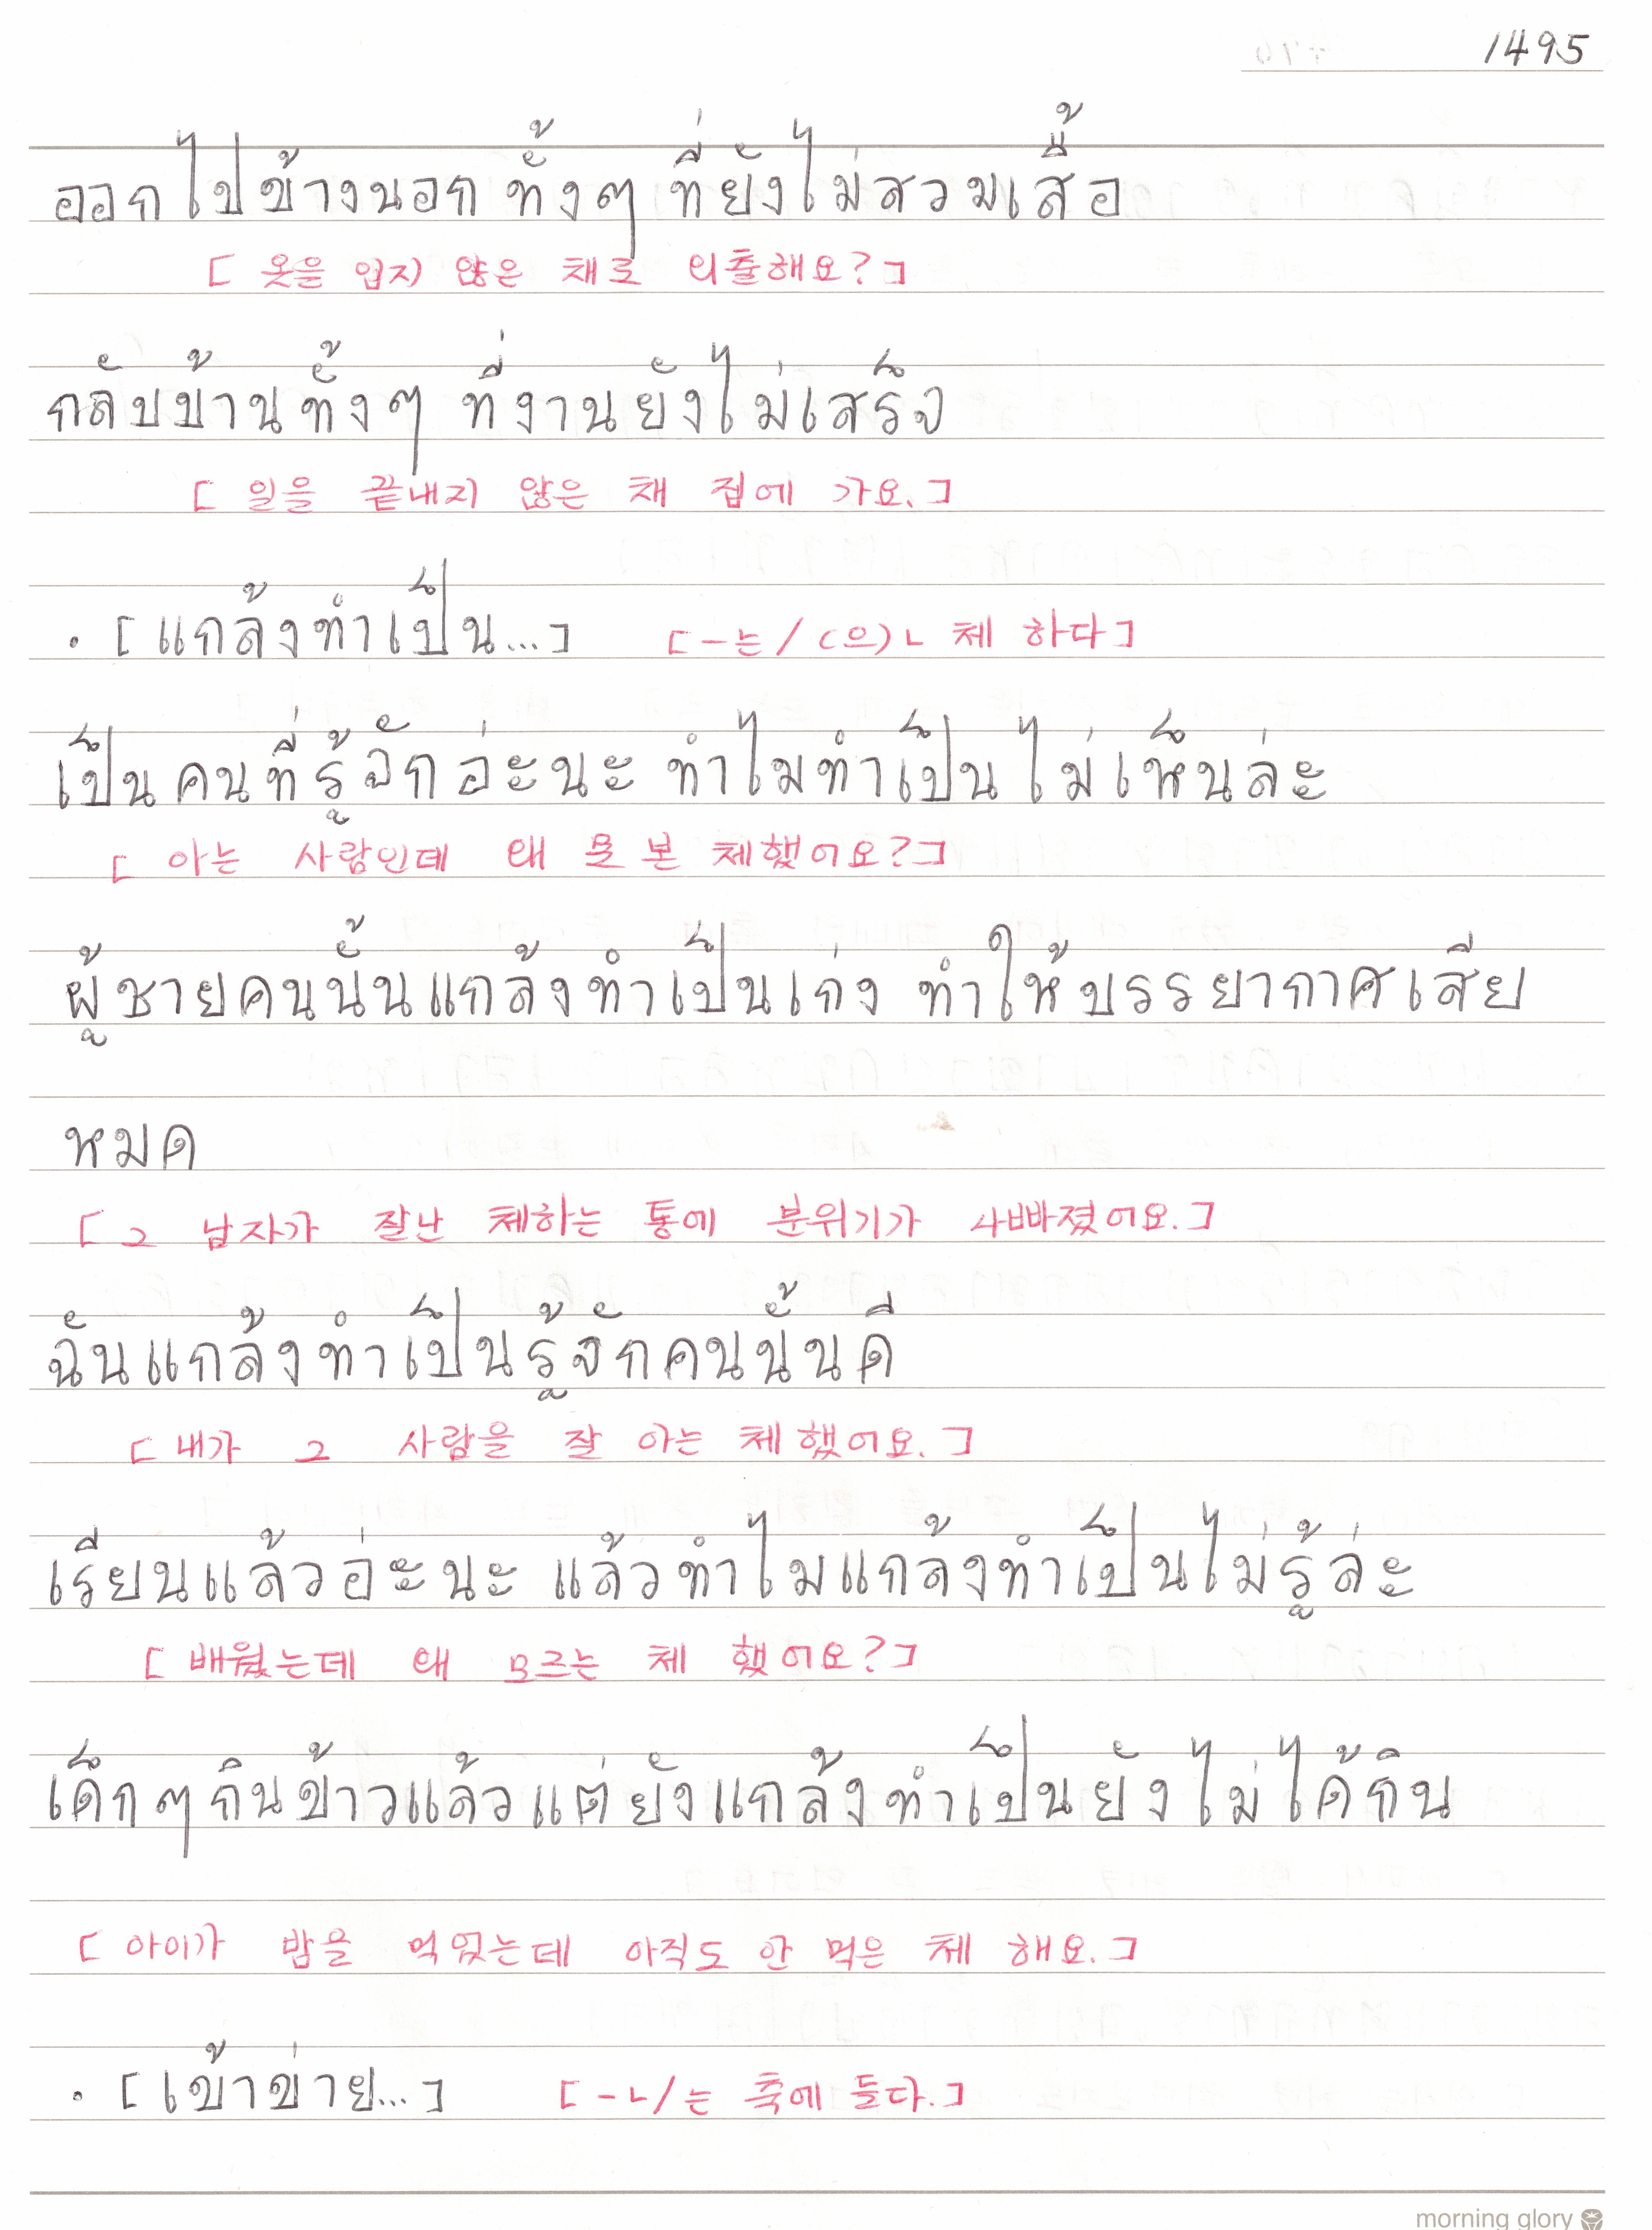 1495
ออกไปข้างนอกทั้งๆ ที่ยังไม่สวมเสื้อ
[ 옷을 입지 않은 채로 외출해요?]
กลับบ้านทั้งๆ ที่งานยังไม่เสร็จ
[ 일을 끝내지 않은 채 집에 가요.]
· [แกล้งทำเป็น...] [-는/(으)ㄴ 체 하다]
เป็นคนที่รู้จักอ่ะนะ ทำไมทำเป็นไม่เห็นล่ะ
[ 아는 사람인데 왜 못 본 체했어요?]
ผู้ชายคนนั้นแกล้งทำเป็นเก่ง ทำให้บรรยากาศเสีย
หมด
[ 그 남자가 잘난 체하는 통에 분위기가 나빠졌어요.]
ฉันแกล้งทำเป็นรู้จักคนนั้นดี
[ 내가 그 사람을 잘 아는 체했어요.]
เรียนแล้วอ่ะนะ แล้วทำไมแกล้งทำเป็นไม่รู้ล่ะ
[ 배웠는데 왜 모르는 체 했어요?]
เด็กๆกินข้าวแล้วแต่ยังแกล้งทำเป็นยังไม่ได้กิน
[ 아이가 밥을 먹었는데 아직도 안 먹은 체 해요.]
· [เข้าข่าย...] [-ㄴ/는 축에 들다.]
morning glory